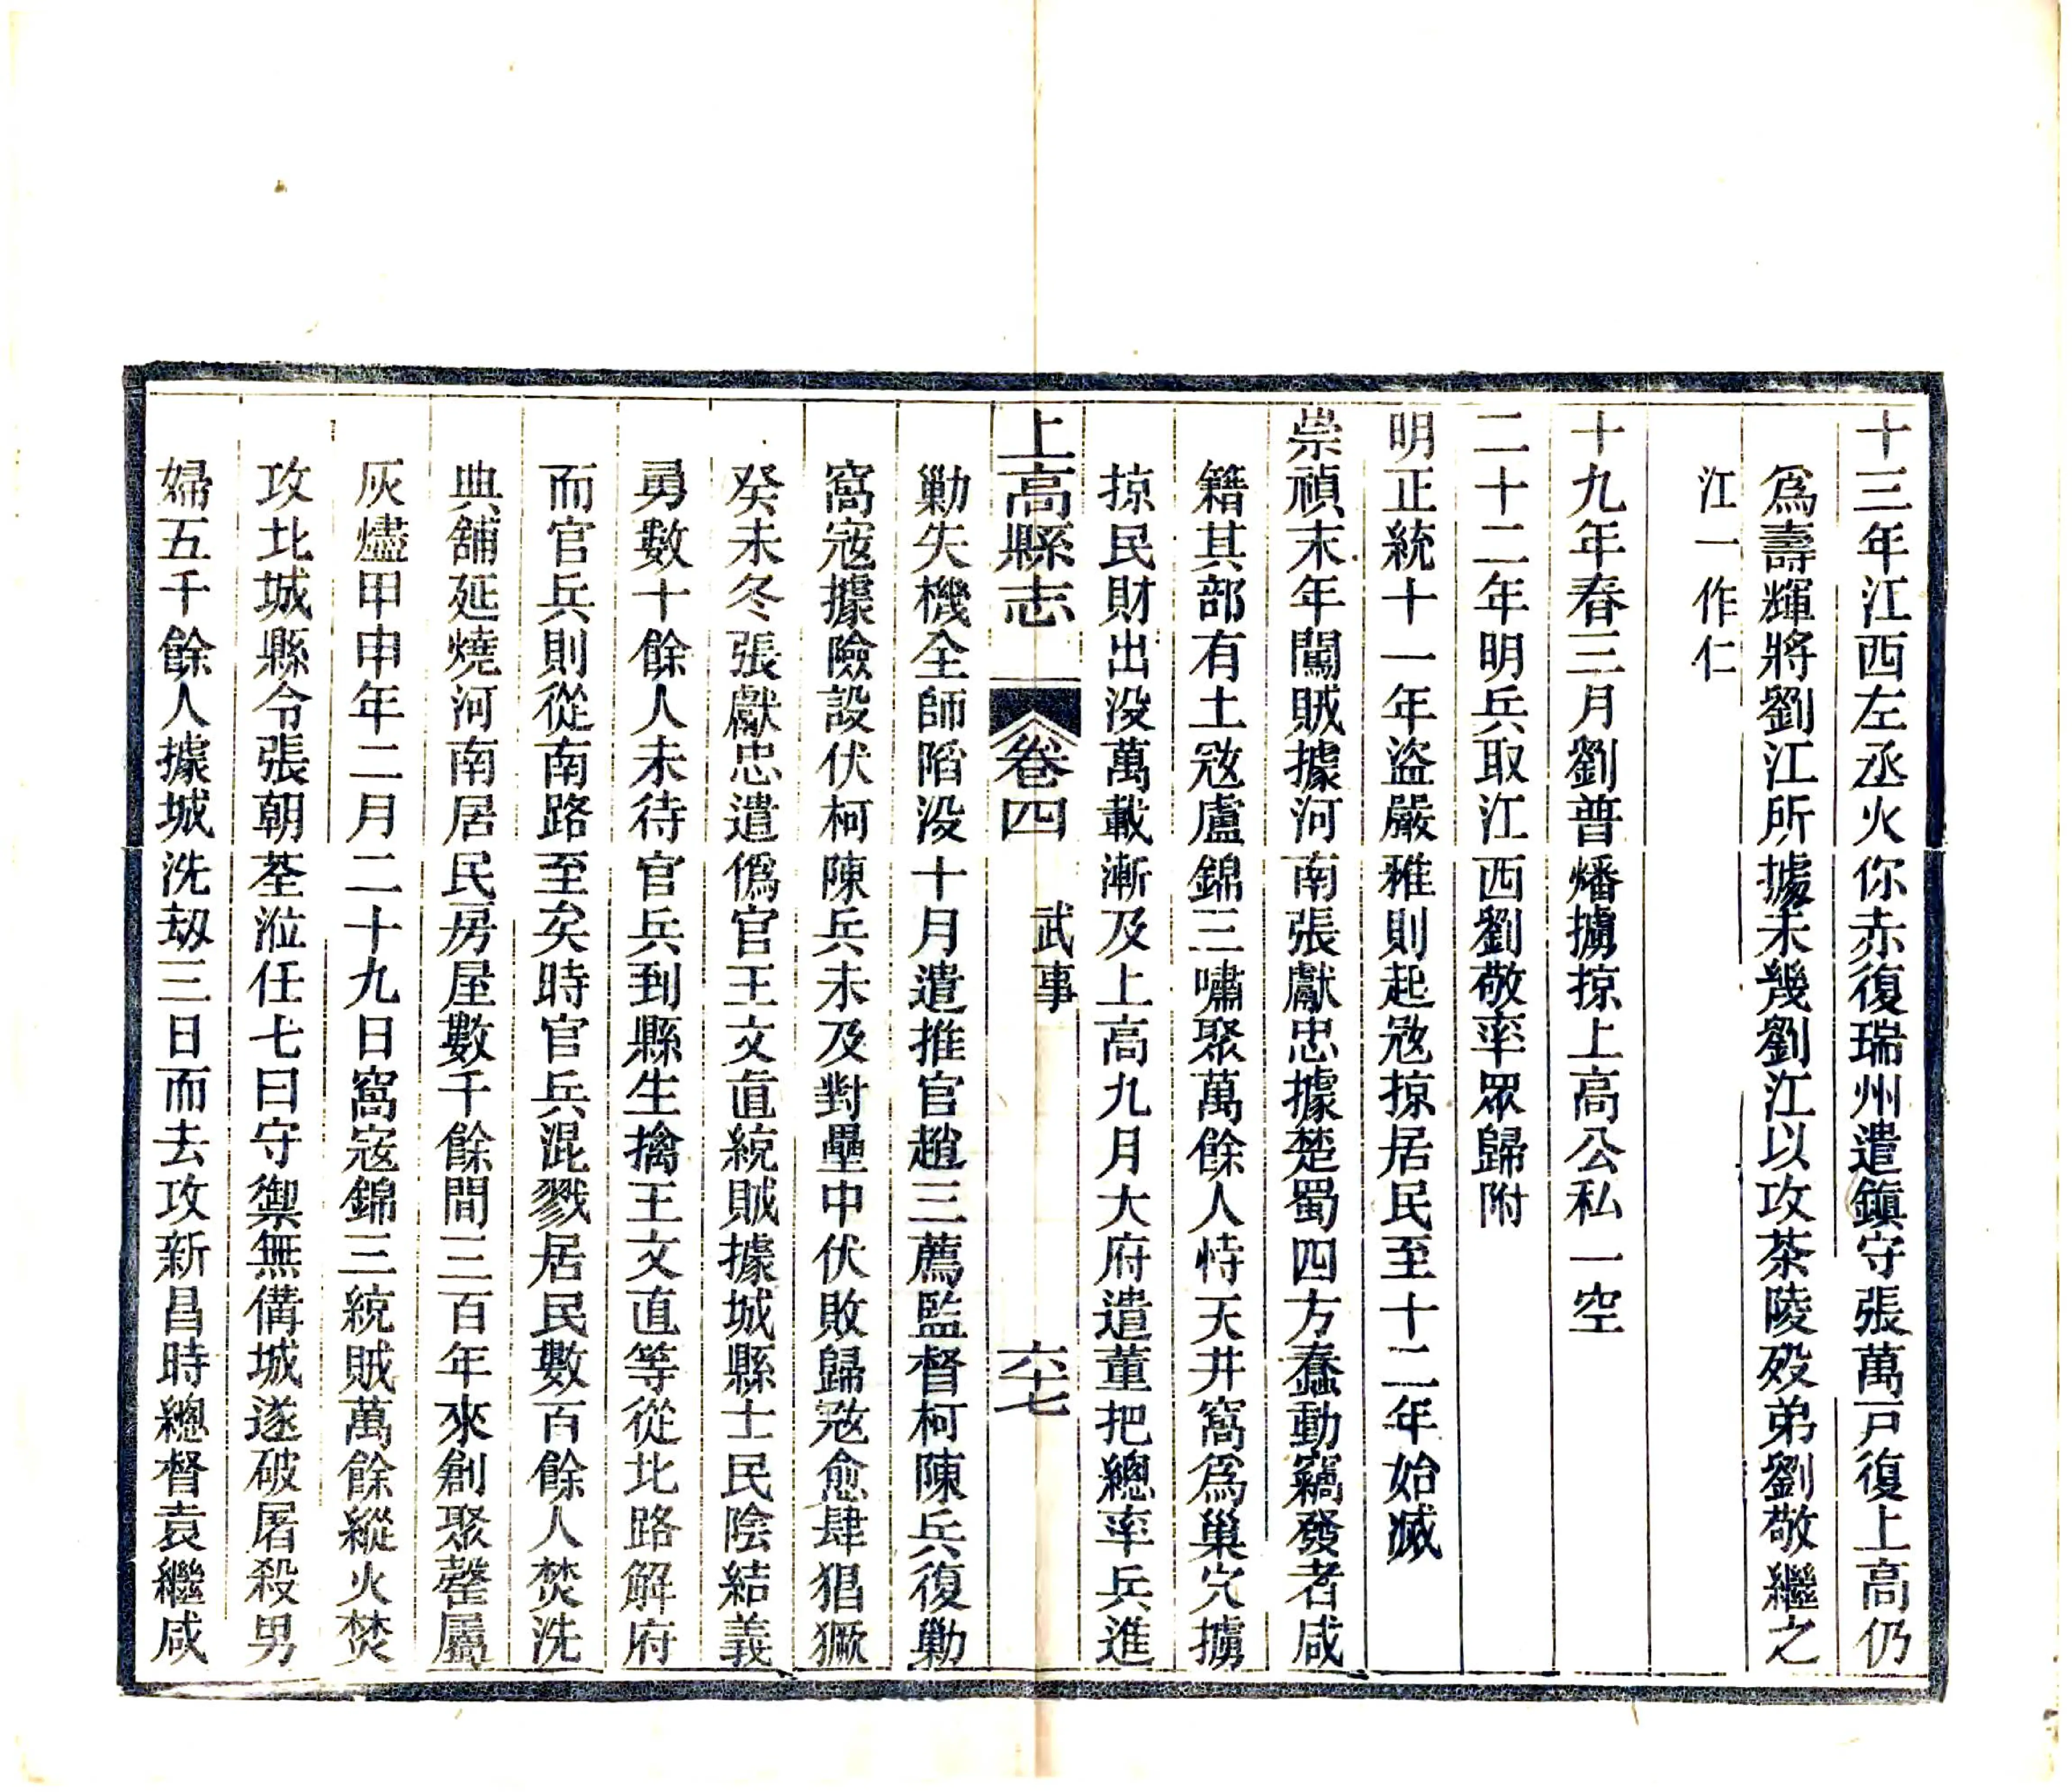 十三年江西左丞火你赤復瑞州遣鎭守張萬戸復上高仍
爲壽輝將劉江所據未幾劉江以攻茶陵歿弟劉敬繼之
江一作仁
十九年春三月劉普燔擄掠上高公私一空
二十二年明兵取江西劉敬率眾歸附
明正統十一年盜嚴雅則起𡨥掠居民至十二年始滅
崇禎末年闖賊據河南張獻忠據楚蜀四方蠢動竊發者咸
籍其部有土𡨥盧錦三嘯聚萬餘人恃天井窩爲巢穴擄
掠民財出没萬載漸及上高九月大府遣董把總率兵進
上高縣志 卷四 武事 六十七
勦失機全師䧟没十月遣推官趙三薦監督柯陳兵復勦
窩𡨥據險設伏柯陳兵未及對壘中伏敗歸𡨥愈肆猖獗
癸未冬張獻忠遣僞官王文直統賊據城縣士民陰結義
勇數十餘人未待官兵到縣生擒王文直等從北路解府
而官兵則從南路至矣時官兵混戮居民數百餘人焚洗
典舖延燒河南居民房屋數千餘間三百年來創聚罄屬
灰燼甲申年二月二十九日窩𡨥錦三統賊萬餘縱火焚
攻北城縣令張朝荃涖任七曰守禦無備城遂破屠殺男
婦五千餘人據城洗刼三日而去攻新昌時總督袁繼咸